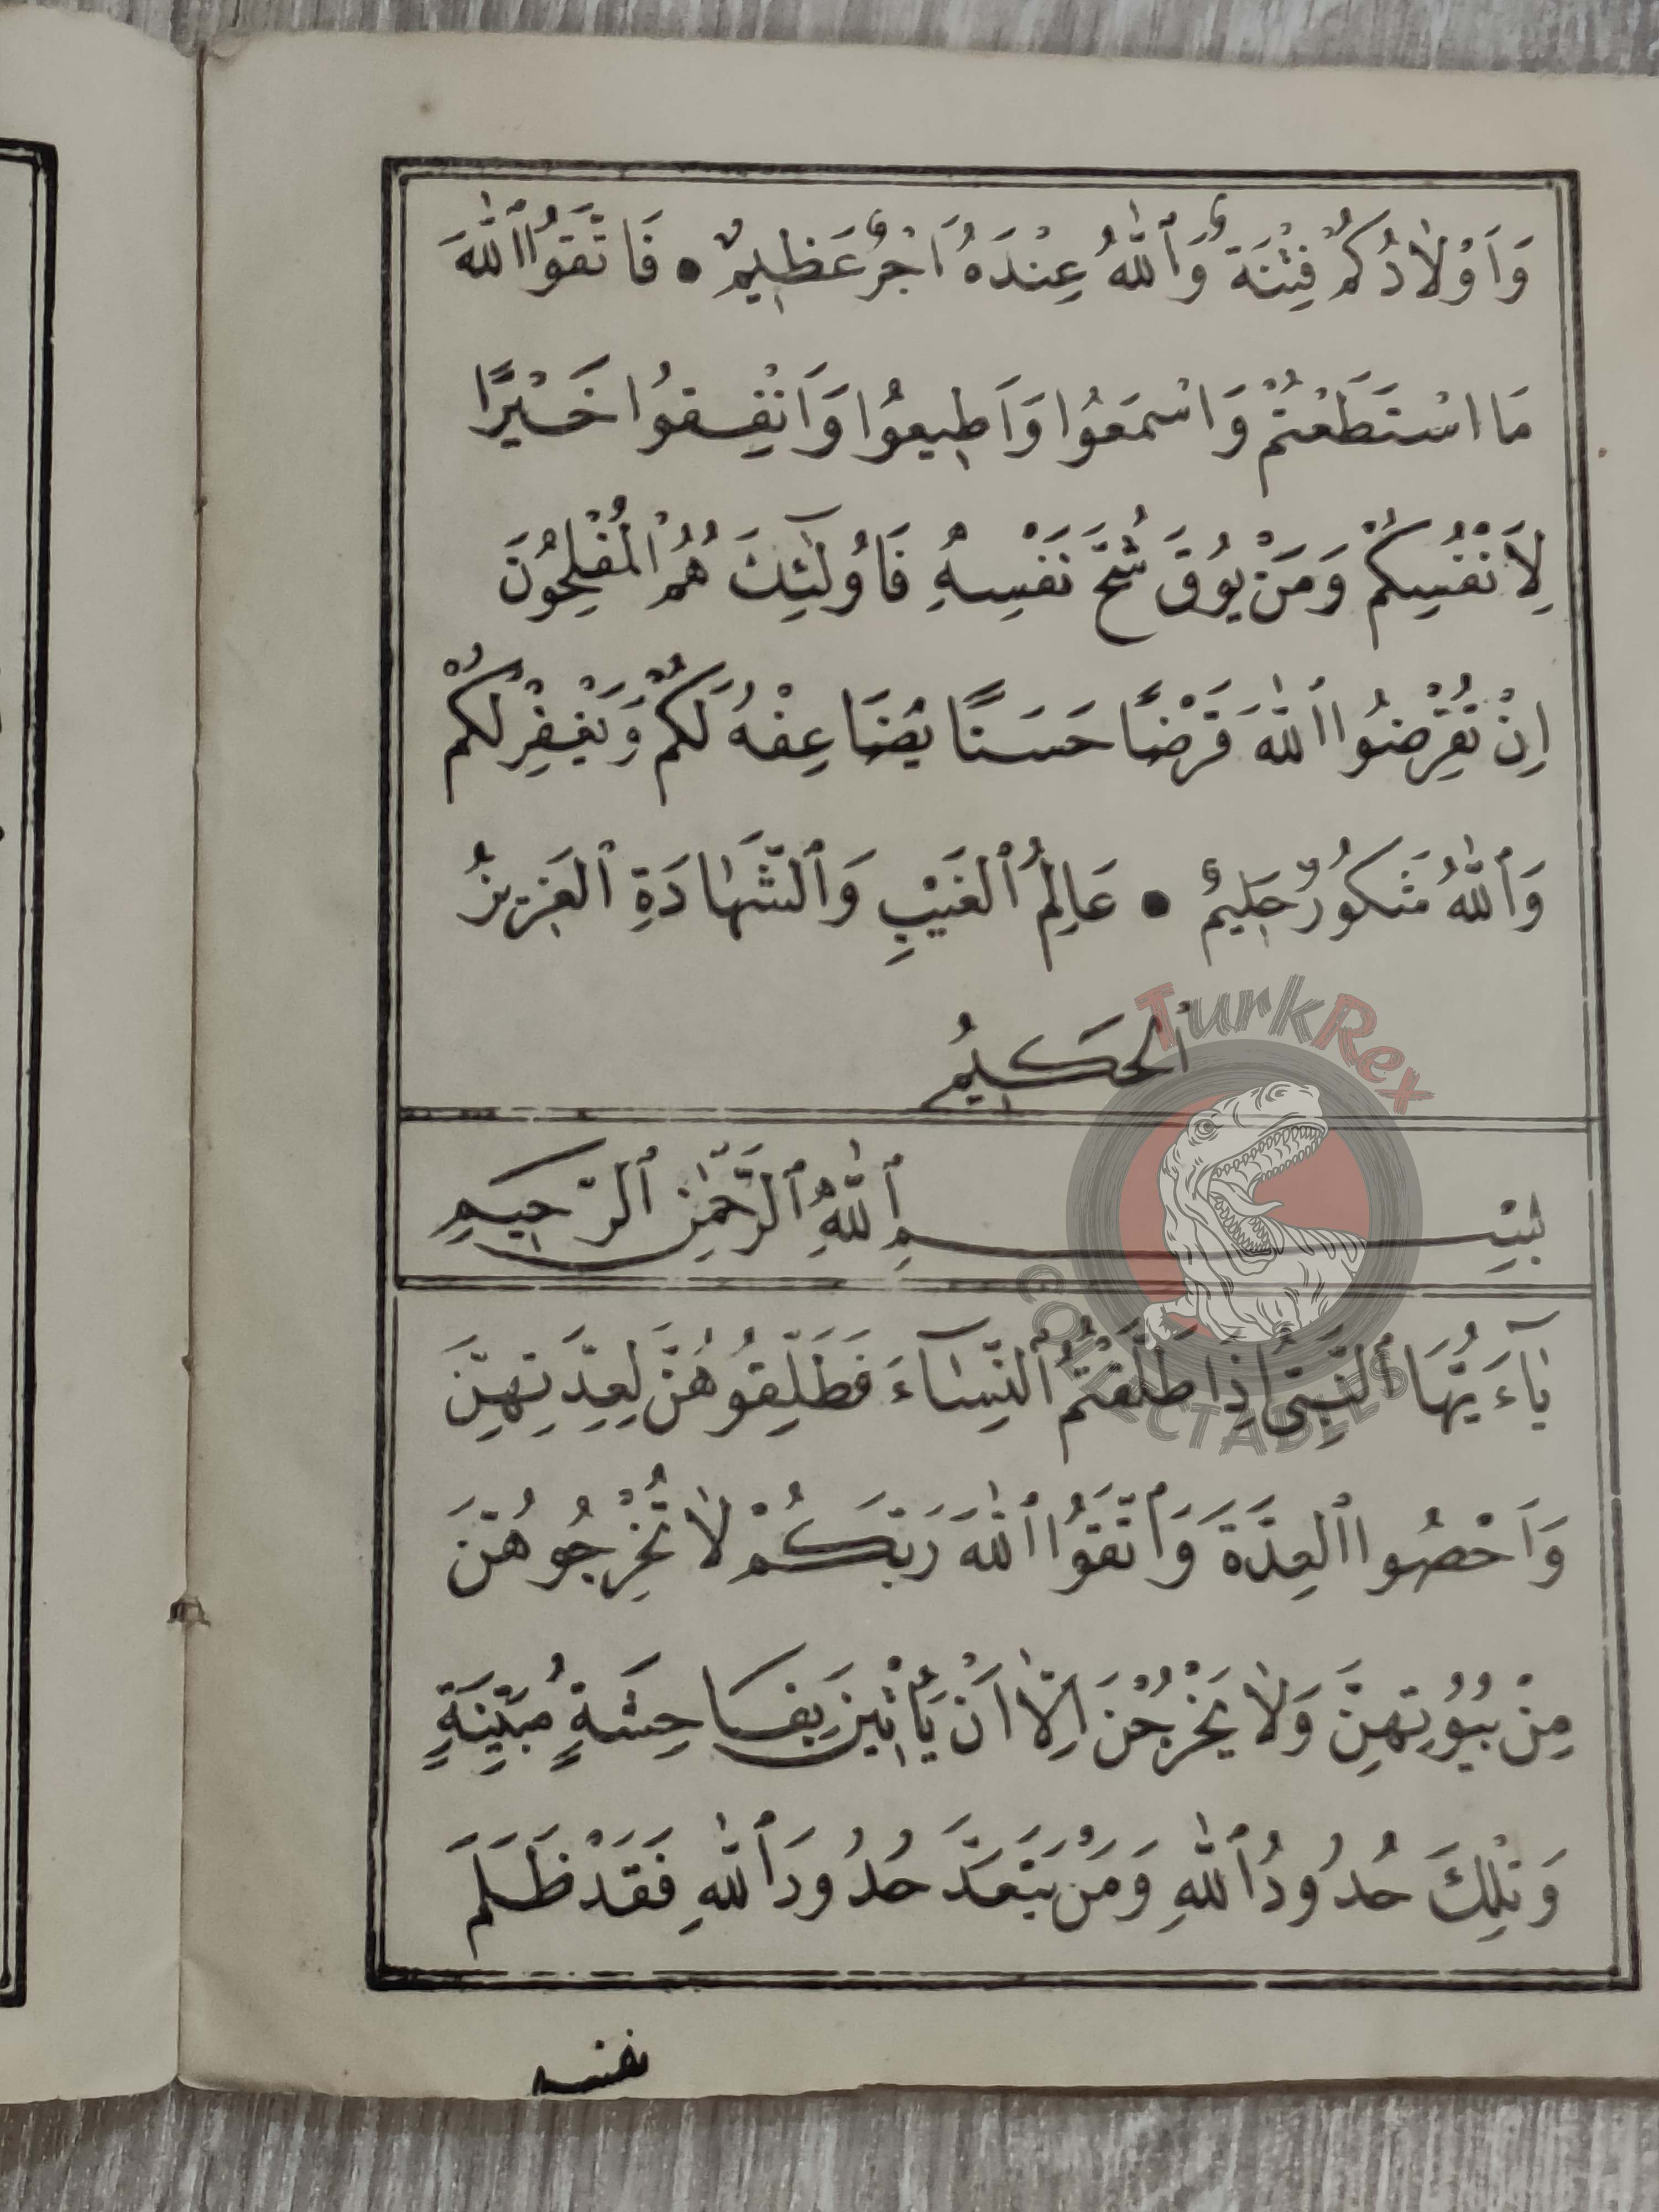 وَاَوْلَادُكُمْ فِتْنَةٌ وَٱللّٰهُ عِنْدَهُ اَجْرٌ عَظِيمٌ ● فَاتَّقُوا اللّٰهَ
مَا اسْتَطَعْتُمْ وَاسْمَعُوا وَاَطِيعُوا وَاَنْفِقُوا خَيْرًا
لِاَنْفُسِكُمْ وَمَنْ يُوقَ شُحَّ نَفْسِهِ فَاُولٰٓئِكَ هُمُ الْمُفْلِحُونَ
اِنْ تُقْرِضُوا اللّٰهَ قَرْضًا حَسَنًا يُضَاعِفْهُ لَكُمْ وَيَغْفِرْ لَكُمْ
وَٱللّٰهُ شَكُورٌ حَلِيمٌ ● عَالِمُ ٱلْغَيْبِ وَٱلشَّهَادَةِ ٱلْعَزِيزُ
ٱلْحَكِيمُ
TurkRex
بِسْمِ ٱللّٰهِ ٱلرَّحْمٰنِ ٱلرَّحِيمِ
يَآءَيُّهَا ٱلنَّبِىُّ اِذَا طَلَّقْتُمُ ٱلنِّسَآءَ فَطَلِّقُوهُنَّ لِعِدَّتِهِنَّ
COLLECTABLES
وَاَحْصُوا ٱلْعِدَّةَ وَٱتَّقُوا ٱللّٰهَ رَبَّكُمْ لَا تُخْرِجُوهُنَّ
مِنْ بُيُوتِهِنَّ وَلَا يَخْرُجْنَ اِلَّا اَنْ يَأْتِينَ بِفَاحِشَةٍ مُبَيِّنَةٍ
وَتِلْكَ حُدُودُ ٱللّٰهِ وَمَنْ يَتَعَدَّ حُدُودَ ٱللّٰهِ فَقَدْ ظَلَمَ
نفسه